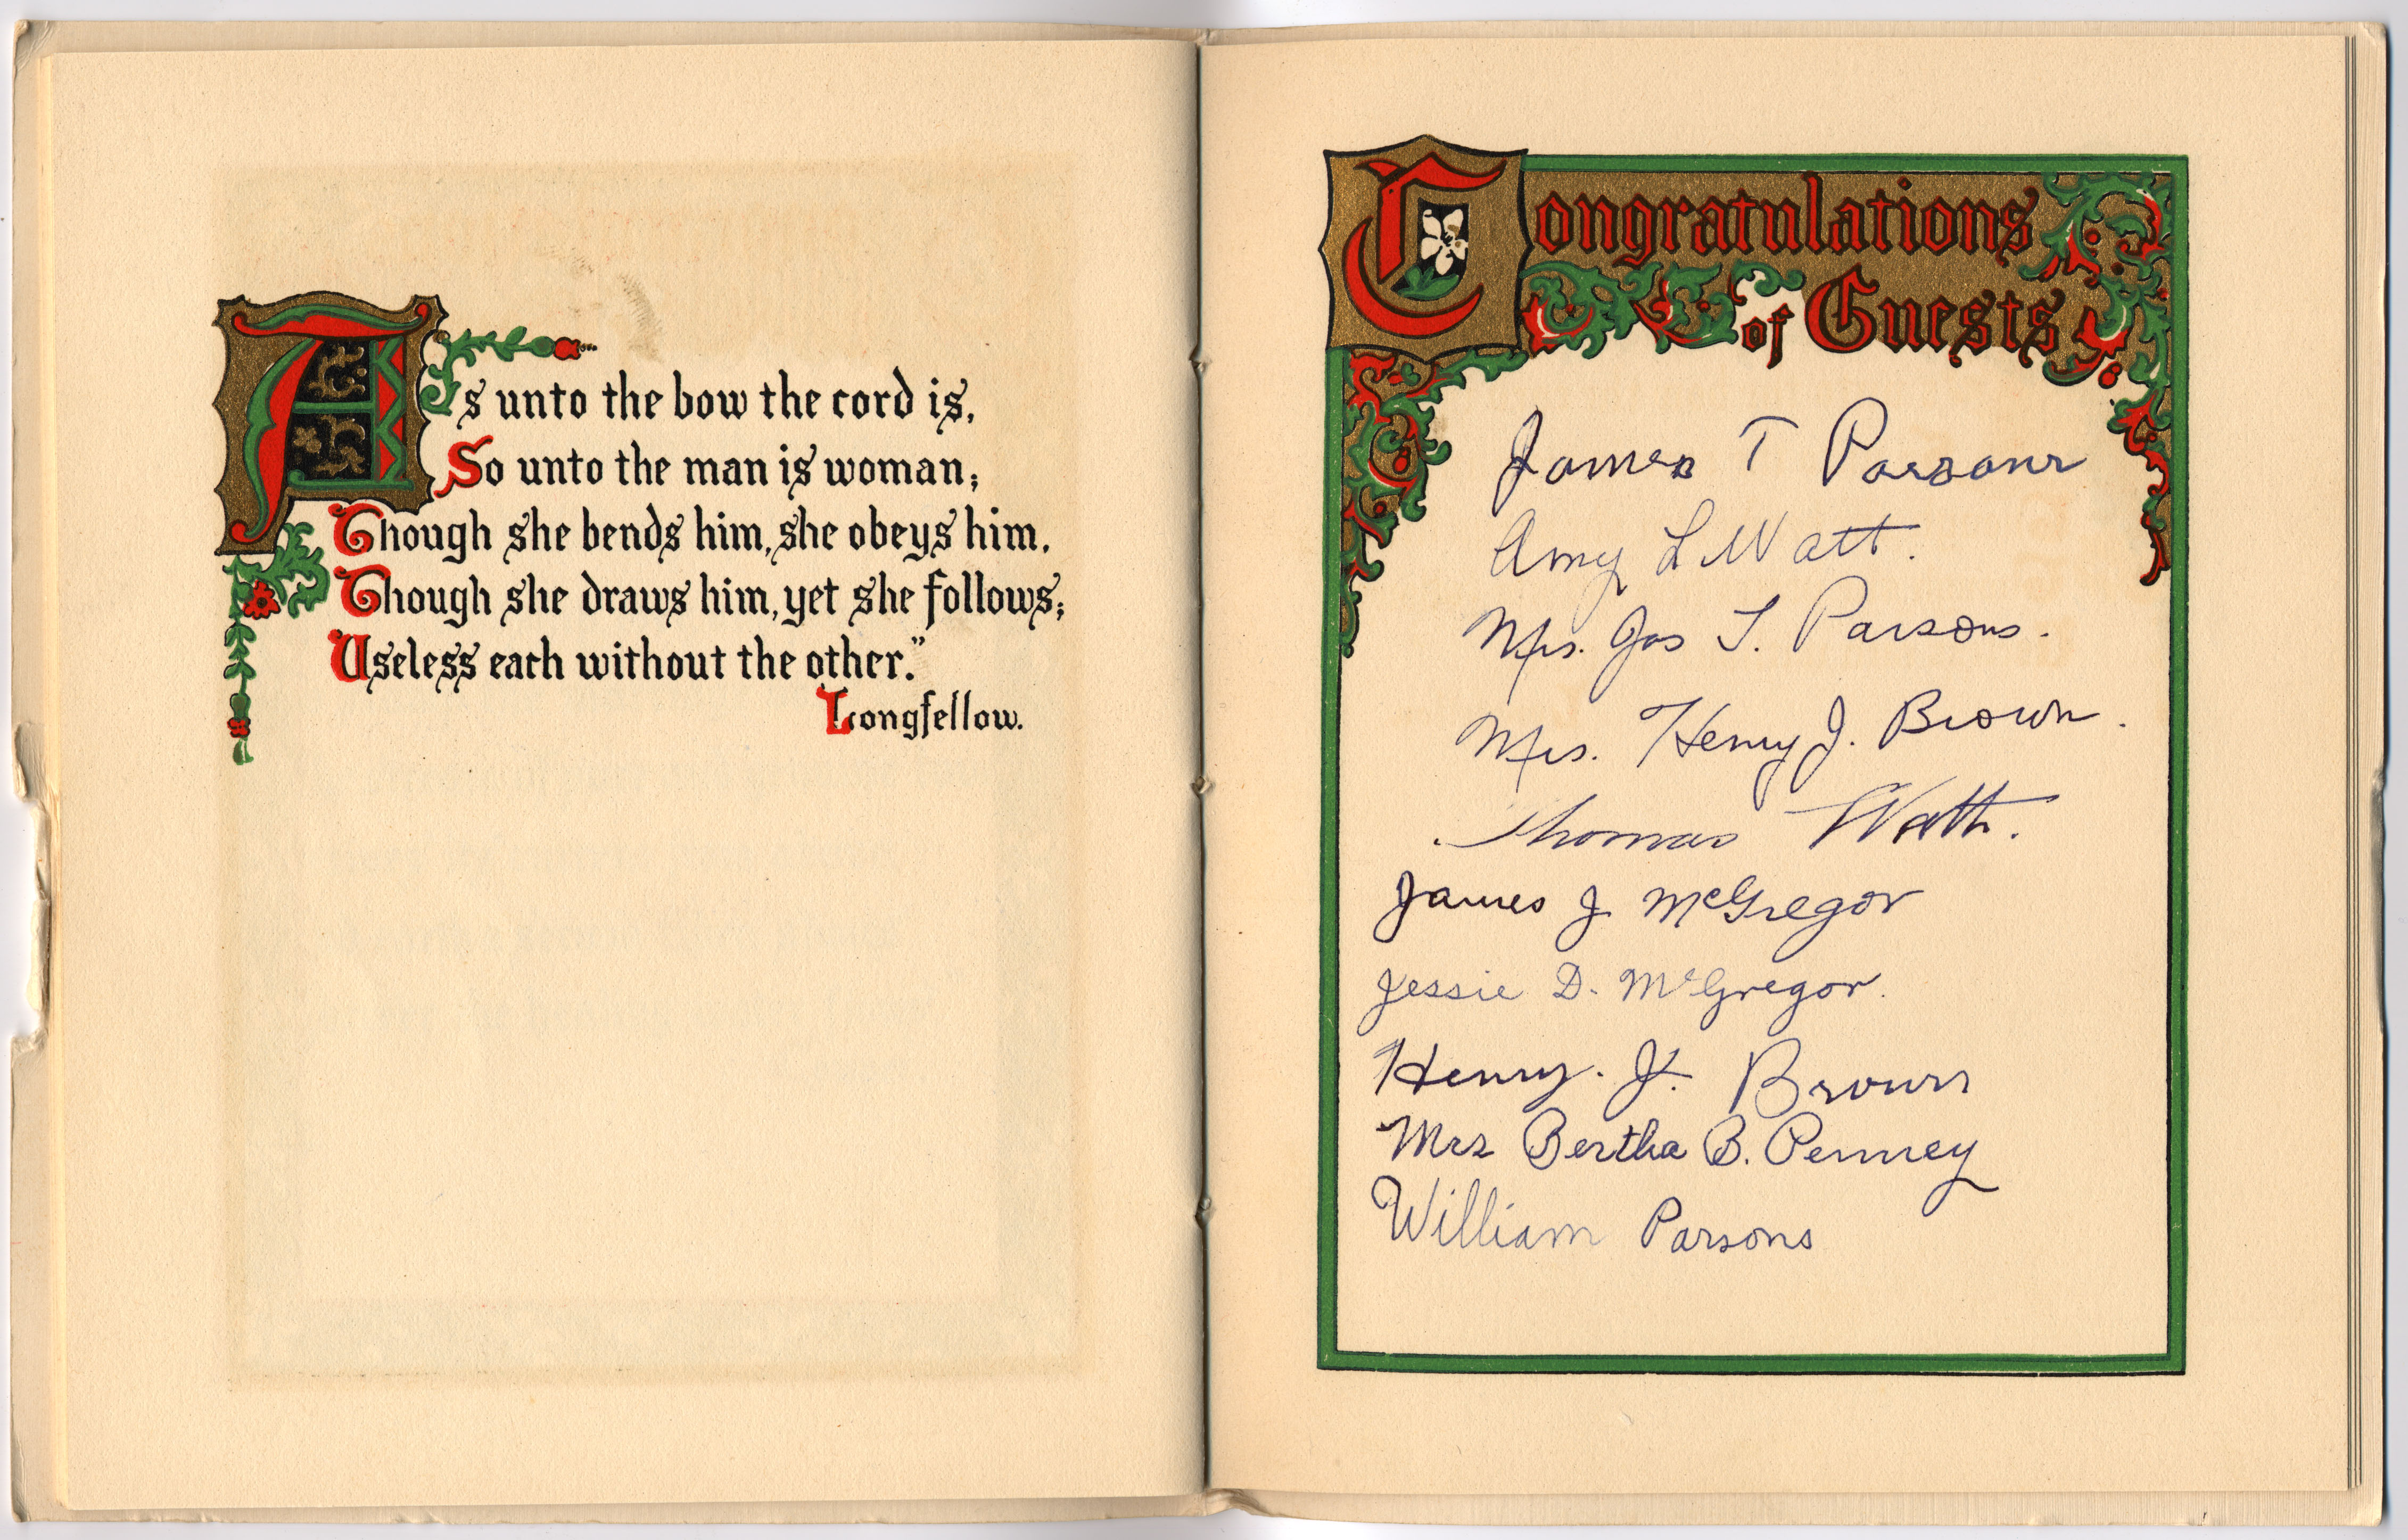 As unto the bow the cord is,
So unto the man is woman;
Though she bends him, she obeys him,
Though she draws him, yet she follows;
Useless each without the other."
Longfellow.
Congratulations
of Guests
James T Parsons
Amy L Watt.
Mrs. Jas T. Parsons.
Mrs. Henry J. Brown.
Thomas Watt.
James J McGregor
Jessie D. McGregor.
Henry. J. Brown
Mrs Bertha B. Penney
William Parsons